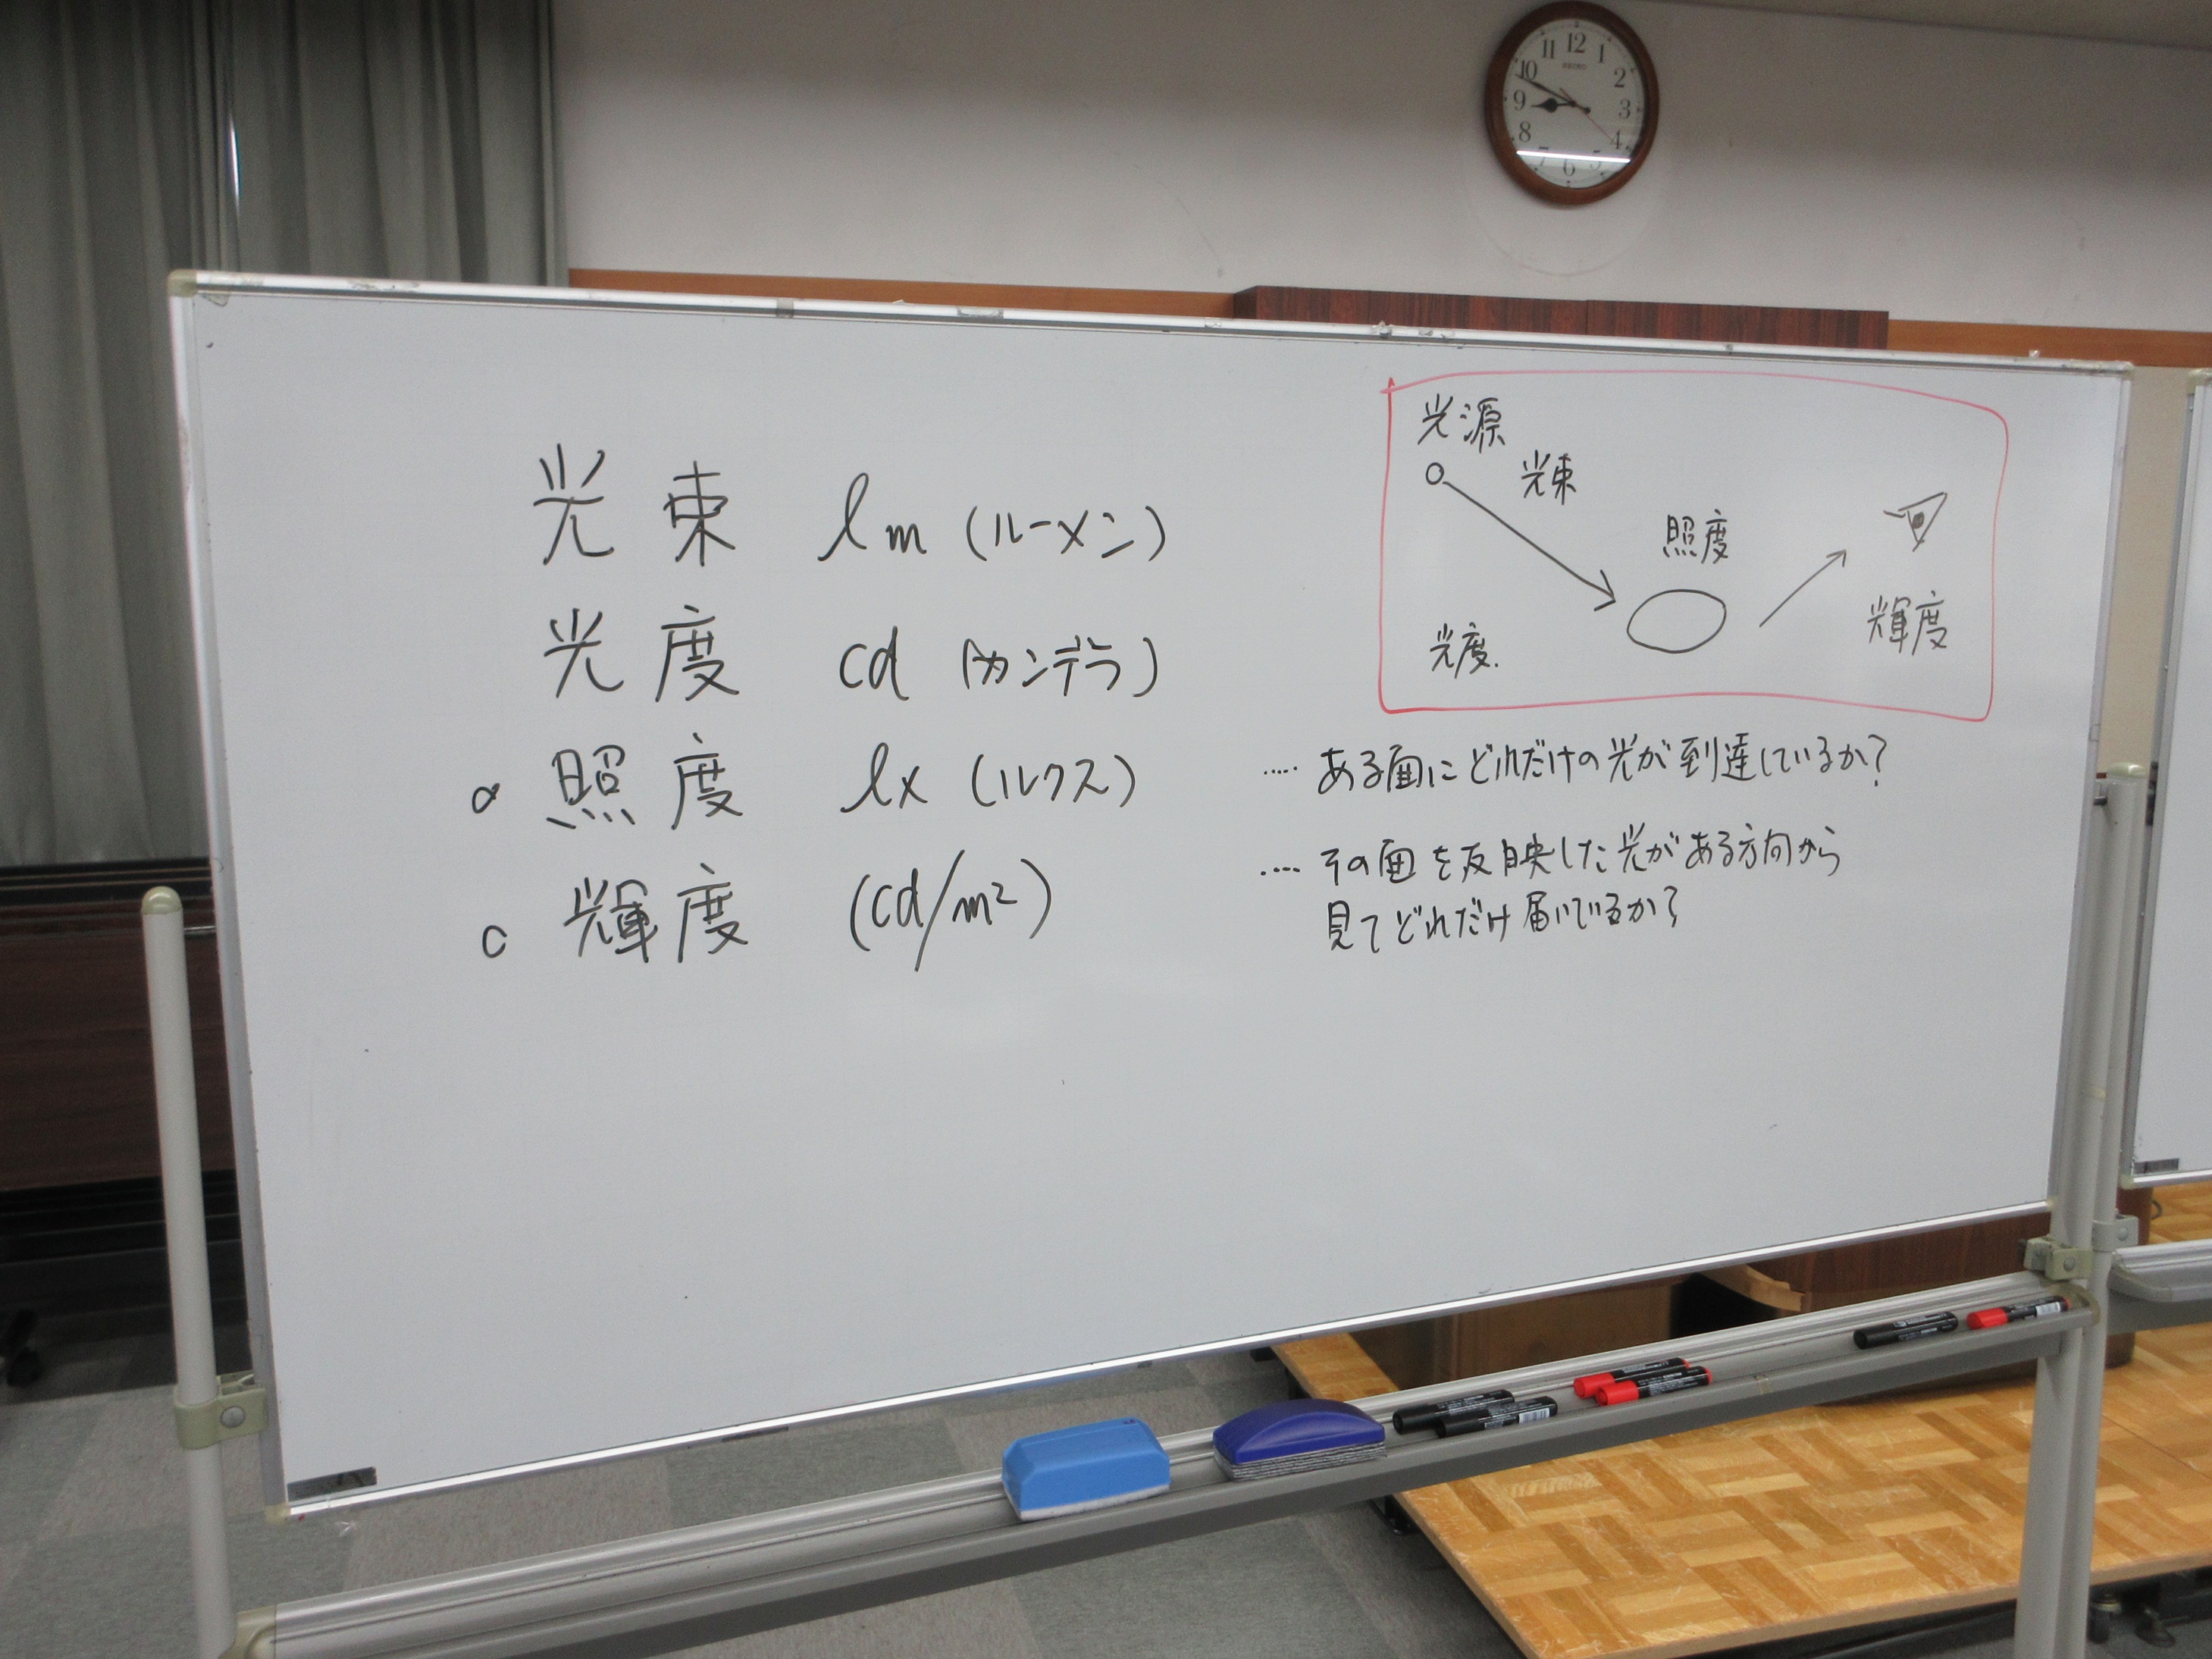 光束 lm (ルーメン)
光度 cd (カンデラ)
照度 lx (ルクス)
輝度 (cd/m²)
光源
光束
照度
輝度
光度.
‥‥ ある面にどれだけの光が到達しているか?
‥‥ その面を反映した光がある方向から
見てどれだけ届いているか?
12
1
2
3
4
5
6
7
8
9
10
11
SEIKO